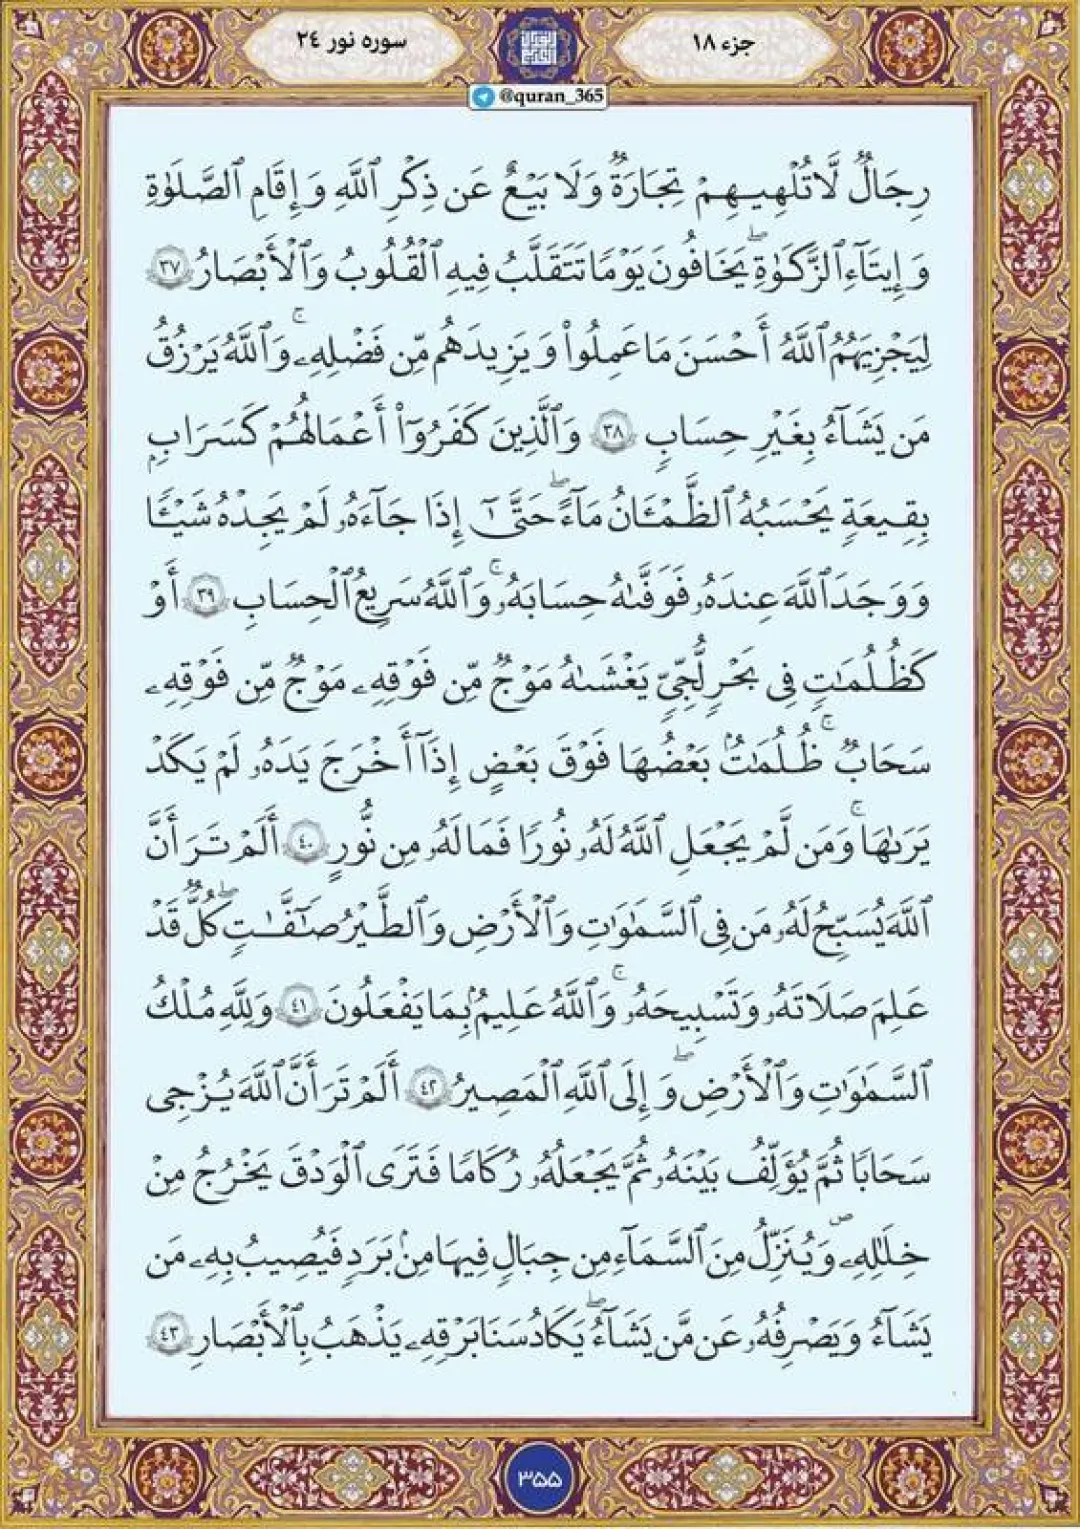 جزء ۱۸
سوره نور ۲٤
@quran_365
رِجَالٌ لَّا تُلْهِيهِمْ تِجَارَةٌ وَلَا بَيْعٌ عَن ذِكْرِ ٱللَّهِ وَإِقَامِ ٱلصَّلَوٰةِ
وَإِيتَآءِ ٱلزَّكَوٰةِ ۖ يَخَافُونَ يَوْمًا تَتَقَلَّبُ فِيهِ ٱلْقُلُوبُ وَٱلْأَبْصَارُ ٣٧
لِيَجْزِيَهُمُ ٱللَّهُ أَحْسَنَ مَا عَمِلُوا۟ وَيَزِيدَهُم مِّن فَضْلِهِۦ ۗ وَٱللَّهُ يَرْزُقُ
مَن يَشَآءُ بِغَيْرِ حِسَابٍ ٣٨ وَٱلَّذِينَ كَفَرُوٓا۟ أَعْمَالُهُمْ كَسَرَابٍۭ
بِقِيعَةٍ يَحْسَبُهُ ٱلظَّمْـَٔانُ مَآءً ۖ حَتَّىٰٓ إِذَا جَآءَهُۥ لَمْ يَجِدْهُ شَيْـًٔا
وَوَجَدَ ٱللَّهَ عِندَهُۥ فَوَفَّىٰهُ حِسَابَهُۥ ۗ وَٱللَّهُ سَرِيعُ ٱلْحِسَابِ ٣٩ أَوْ
كَظُلُمَـٰتٍ فِى بَحْرٍ لُّجِّىٍّ يَغْشَىٰهُ مَوْجٌ مِّن فَوْقِهِۦ مَوْجٌ مِّن فَوْقِهِۦ
سَحَابٌ ۚ ظُلُمَـٰتٌۢ بَعْضُهَا فَوْقَ بَعْضٍ إِذَآ أَخْرَجَ يَدَهُۥ لَمْ يَكَدْ
يَرَىٰهَا ۗ وَمَن لَّمْ يَجْعَلِ ٱللَّهُ لَهُۥ نُورًا فَمَا لَهُۥ مِن نُّورٍ ٤٠ أَلَمْ تَرَ أَنَّ
ٱللَّهَ يُسَبِّحُ لَهُۥ مَن فِى ٱلسَّمَـٰوَٰتِ وَٱلْأَرْضِ وَٱلطَّيْرُ صَـٰٓفَّـٰتٍ ۖ كُلٌّ قَدْ
عَلِمَ صَلَاتَهُۥ وَتَسْبِيحَهُۥ ۗ وَٱللَّهُ عَلِيمٌۢ بِمَا يَفْعَلُونَ ٤١ وَلِلَّهِ مُلْكُ
ٱلسَّمَـٰوَٰتِ وَٱلْأَرْضِ ۖ وَإِلَى ٱللَّهِ ٱلْمَصِيرُ ٤٢ أَلَمْ تَرَ أَنَّ ٱللَّهَ يُزْجِى
سَحَابًا ثُمَّ يُؤَلِّفُ بَيْنَهُۥ ثُمَّ يَجْعَلُهُۥ رُكَامًا فَتَرَى ٱلْوَدْقَ يَخْرُجُ مِنْ
خِلَـٰلِهِۦ وَيُنَزِّلُ مِنَ ٱلسَّمَآءِ مِن جِبَالٍ فِيهَا مِنۢ بَرَدٍ فَيُصِيبُ بِهِۦ مَن
يَشَآءُ وَيَصْرِفُهُۥ عَن مَّن يَشَآءُ ۖ يَكَادُ سَنَا بَرْقِهِۦ يَذْهَبُ بِٱلْأَبْصَـٰرِ ٤٣
۳۵۵